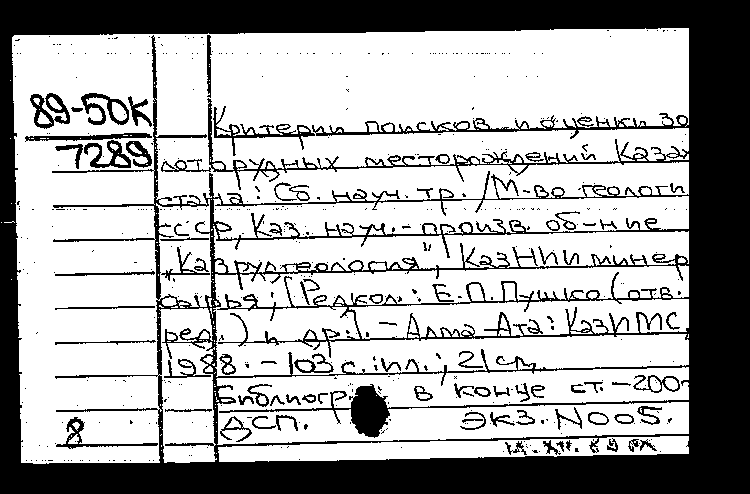 89-50К
7289
Критерии поисков и оценки зо
лоторудных месторождений Казах
стана: Сб. науч. тр. /М-во геологи
СССР, Каз. науч.-произв. об-ние
„Казрудгеология", КазНИИ минер
сырья; [Редкол.: Е.П. Пушко (отв.
ред.) и др.]. - Алма-Ата: КазИМС,
1988. - 103 с.: ил.; 21 см.
Библиогр. в конце ст. - 200
ДСП. ЭКЗ. N005.
8